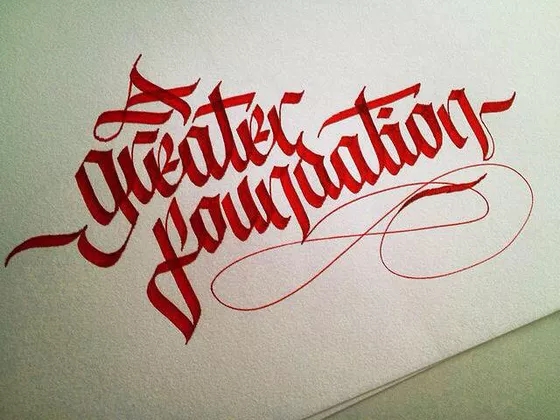 A
greater
foundation